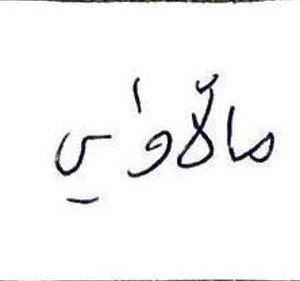 مالاوي